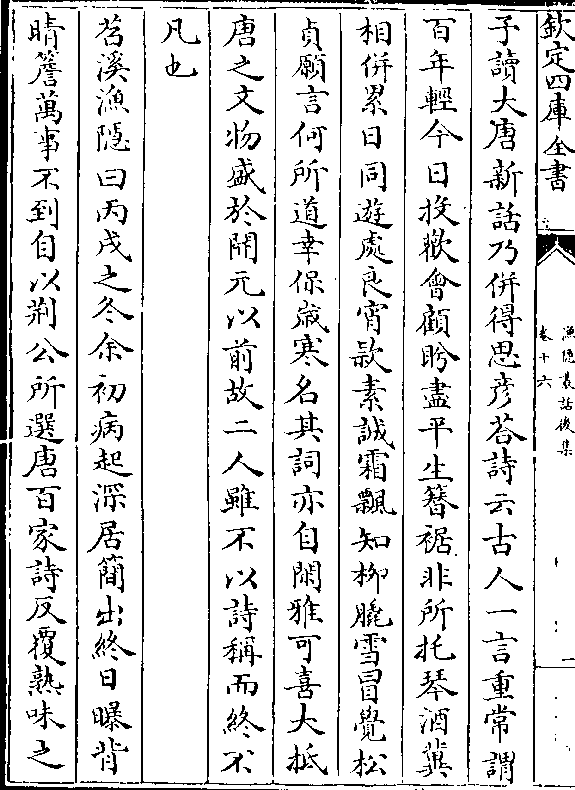 欽定四庫全書
漁隱叢話後集
卷十六
一
子讀大唐新話乃併得思彦荅詩云古人一言重常謂
百年輕今日投歡會顧盼盡平生簪裾非所托琴酒冀
相併累日同遊處良宵款素誠霜飄知柳脆雪冒覺松
貞願言何所道幸保歳寒名其詞亦自閑雅可喜大抵
唐之文物盛於開元以前故二人雖不以詩稱而終不
凡也
苕溪漁隠曰丙戌之冬余初病起深居簡出終日曝背
晴簷萬事不到自以荆公所選唐百家詩反覆熟味之